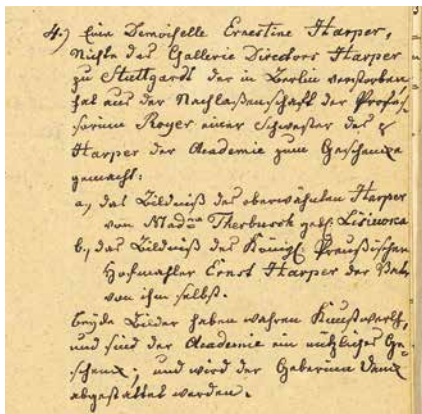 4.) Eine Demoiselle Ernestine Harper,
Nichte des Gallerie Directors Harper
zu Stuttgardt der in Berlin verstorben
hat aus der Nachlaßenschaft der Profes-
sorinn Royer einer Schwester des
Harper der Academie zum Geschenke
gemacht:
a., das Bildniß des oberwähnten Harper
von Mad.me Therbusch geb. Lisiewska
b., das Bildniß des Königl. Preußischen
Hofmahler Ernst Harper der Vater
von ihm selbst.
beyde Bilder haben wahren Kunstwerth,
und sind der Academie ein nützliches Ge-
schenk; und wird der Geberinn Dank
abgestattet werden.